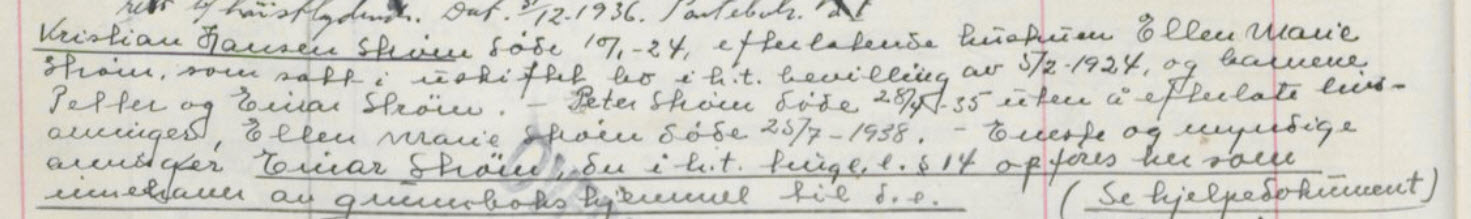 rett til høistbydende. Dat. 31/12-1936. Pantebok.
Kristian Hansen Strøm døde 10/1-24, efterlatende hustruen Ellen Marie
Strøm, som satt i uskiftet bo i h.t. bevilling av 5/2-1924, og barnene
Petter og Einar Strøm. - Peter Strøm døde 28/4-35 uten å efterlate livs-
arvinger, Ellen Marie Strøm døde 25/7-1938. - Eneste og myndige
arvinger Einar Strøm, der i h.t. tingl. l. § 14 opføres her som
innehaver av grunnboks hjemmel til d.e. (Se hjelpedokument)